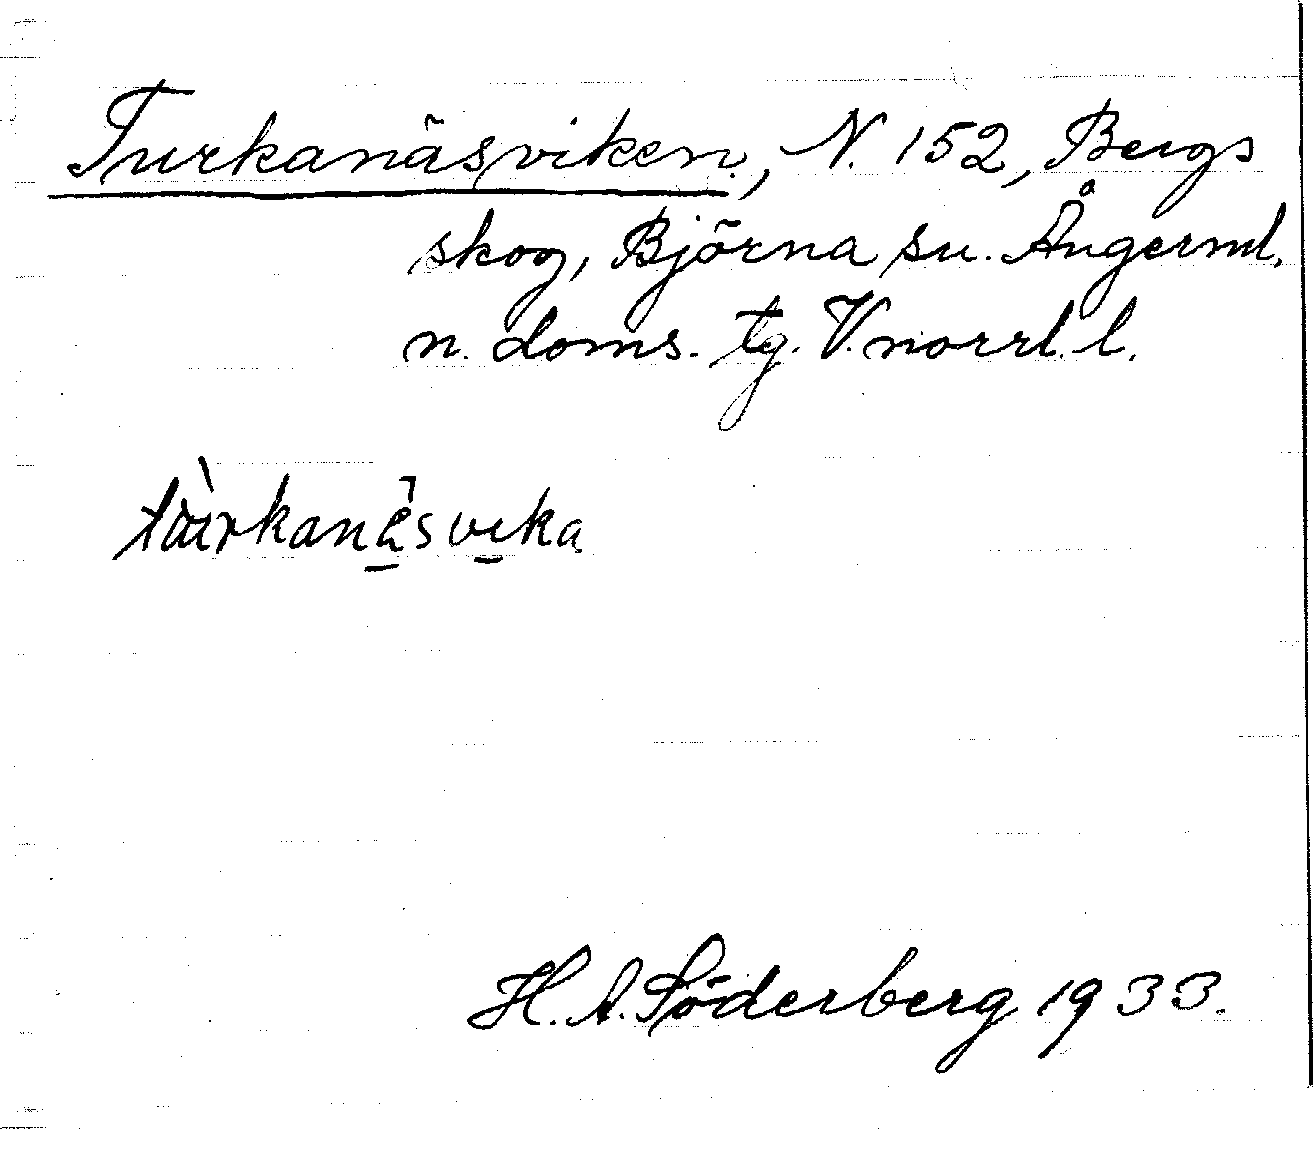 Turkanäsviken, N. 152, Bergs
skog, Björna sn. Ångerml.
n. doms. tg. V.norrl. l.
H. A. Söderberg 1933.